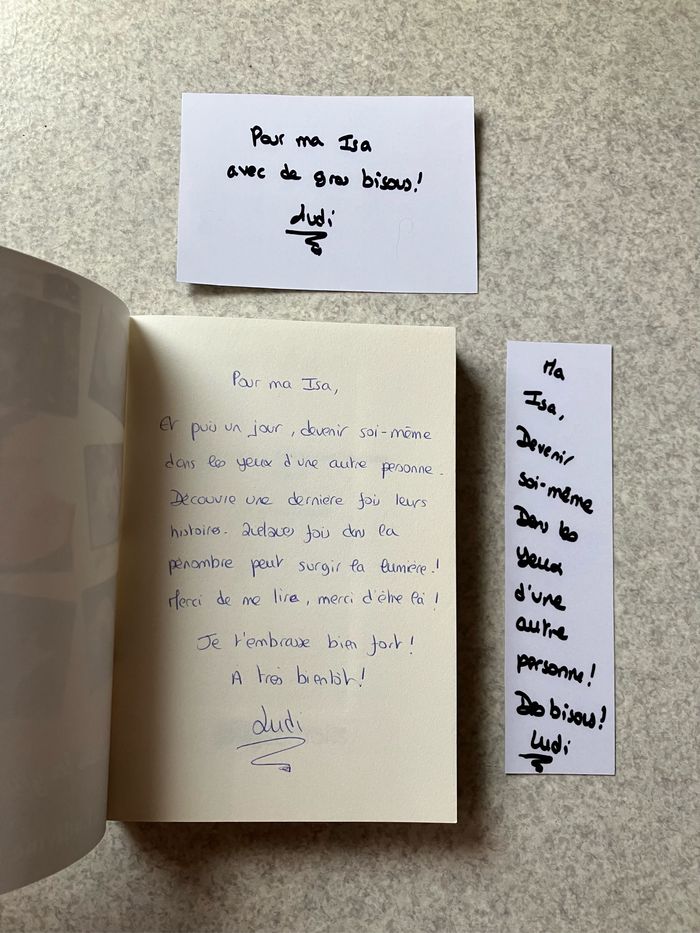 Pour ma Isa
avec de gros bisous!
Ludi
Pour ma Isa,
Et puis un jour, devenir soi-même
dans les yeux d'une autre personne.
Découvre une dernière fois leurs
histoires. Quelques fois dans la
pénombre peut surgir la lumière!
Merci de me lire, merci d'être là!
Je t'embrasse bien fort!
A très bientôt!
Ludi
Ma
Isa,
Devenir
soi-même
Dans les
yeux
d'une
autre
personne!
Des bisous!
Ludi